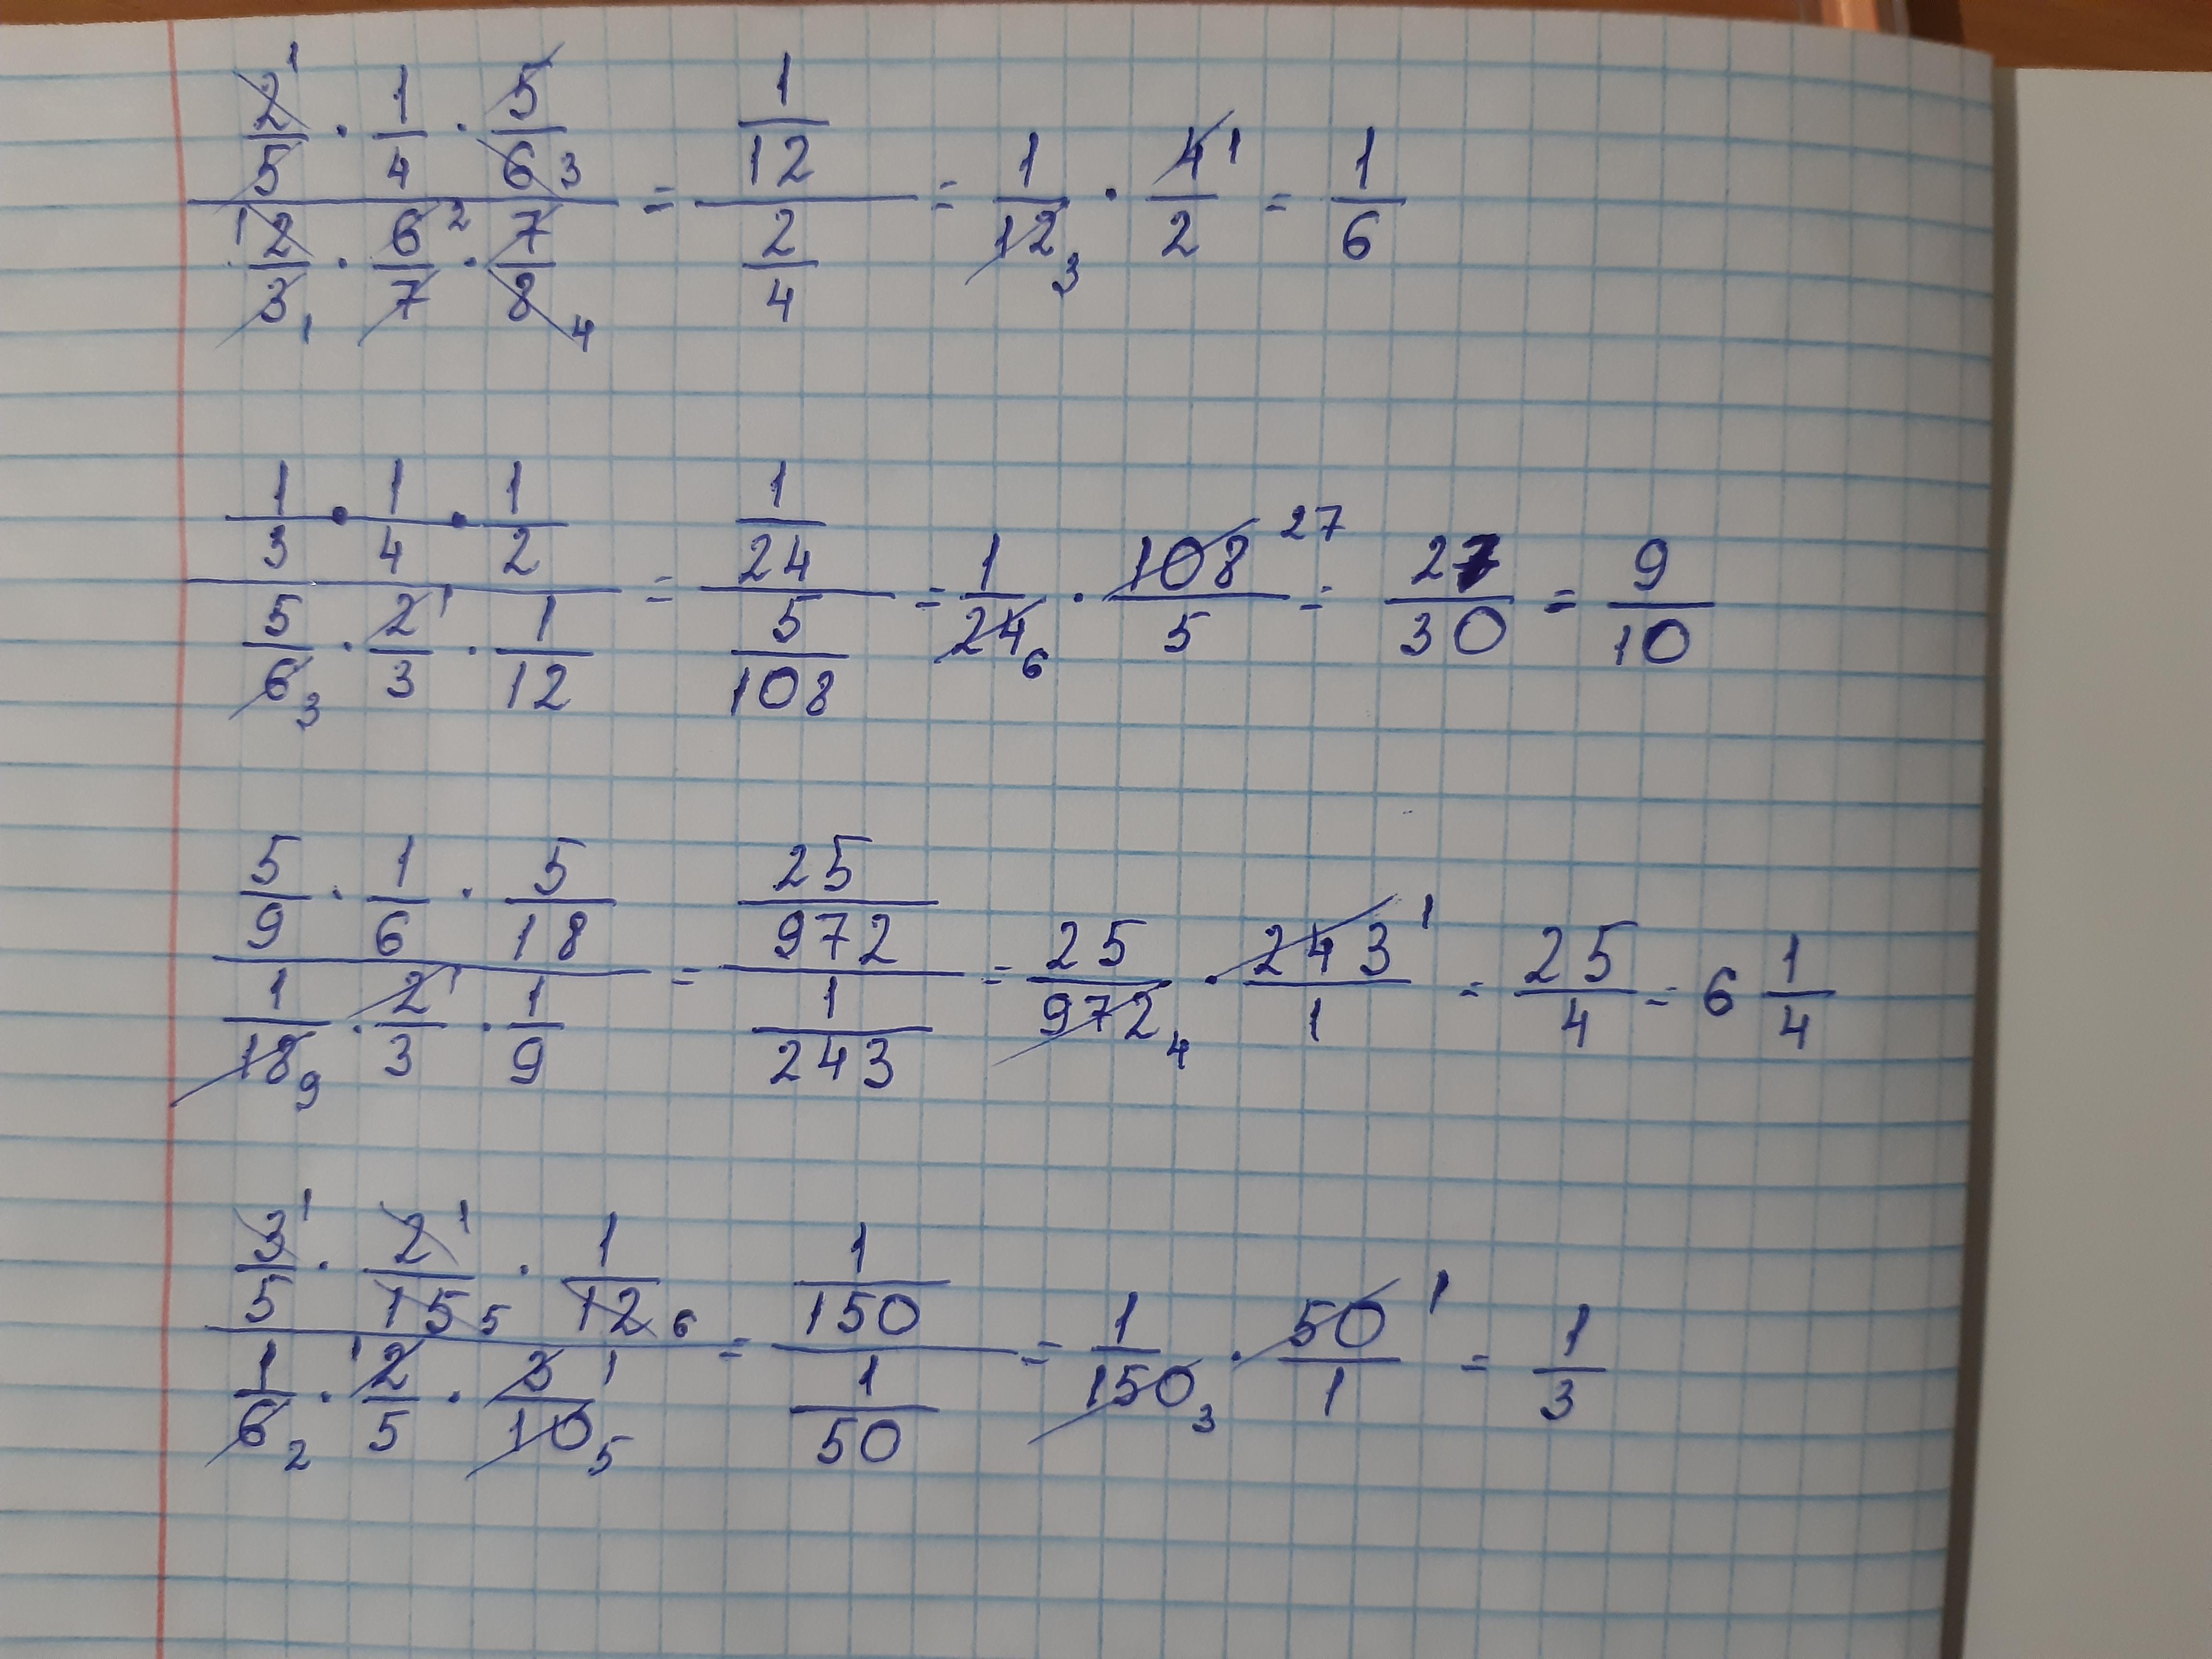 \frac{\frac{2}{5} \cdot \frac{1}{4} \cdot \frac{5}{6}}{\frac{2}{3} \cdot \frac{6}{7} \cdot \frac{7}{8}} = \frac{\frac{1}{12}}{\frac{2}{4}} = \frac{1}{12} \cdot \frac{4}{2} = \frac{1}{6}
\frac{\frac{1}{3} \cdot \frac{1}{4} \cdot \frac{1}{2}}{\frac{5}{6} \cdot \frac{2}{3} \cdot \frac{1}{12}} = \frac{\frac{1}{24}}{\frac{5}{108}} = \frac{1}{24} \cdot \frac{108}{5} = \frac{27}{30} = \frac{9}{10}
\frac{\frac{5}{9} \cdot \frac{1}{6} \cdot \frac{5}{18}}{\frac{1}{18} \cdot \frac{2}{3} \cdot \frac{1}{9}} = \frac{\frac{25}{972}}{\frac{1}{243}} = \frac{25}{972} \cdot \frac{243}{1} = \frac{25}{4} = 6 \frac{1}{4}
\frac{\frac{3}{5} \cdot \frac{2}{15} \cdot \frac{1}{12}}{\frac{1}{6} \cdot \frac{2}{5} \cdot \frac{3}{10}} = \frac{\frac{1}{150}}{\frac{1}{50}} = \frac{1}{150} \cdot \frac{50}{1} = \frac{1}{3}